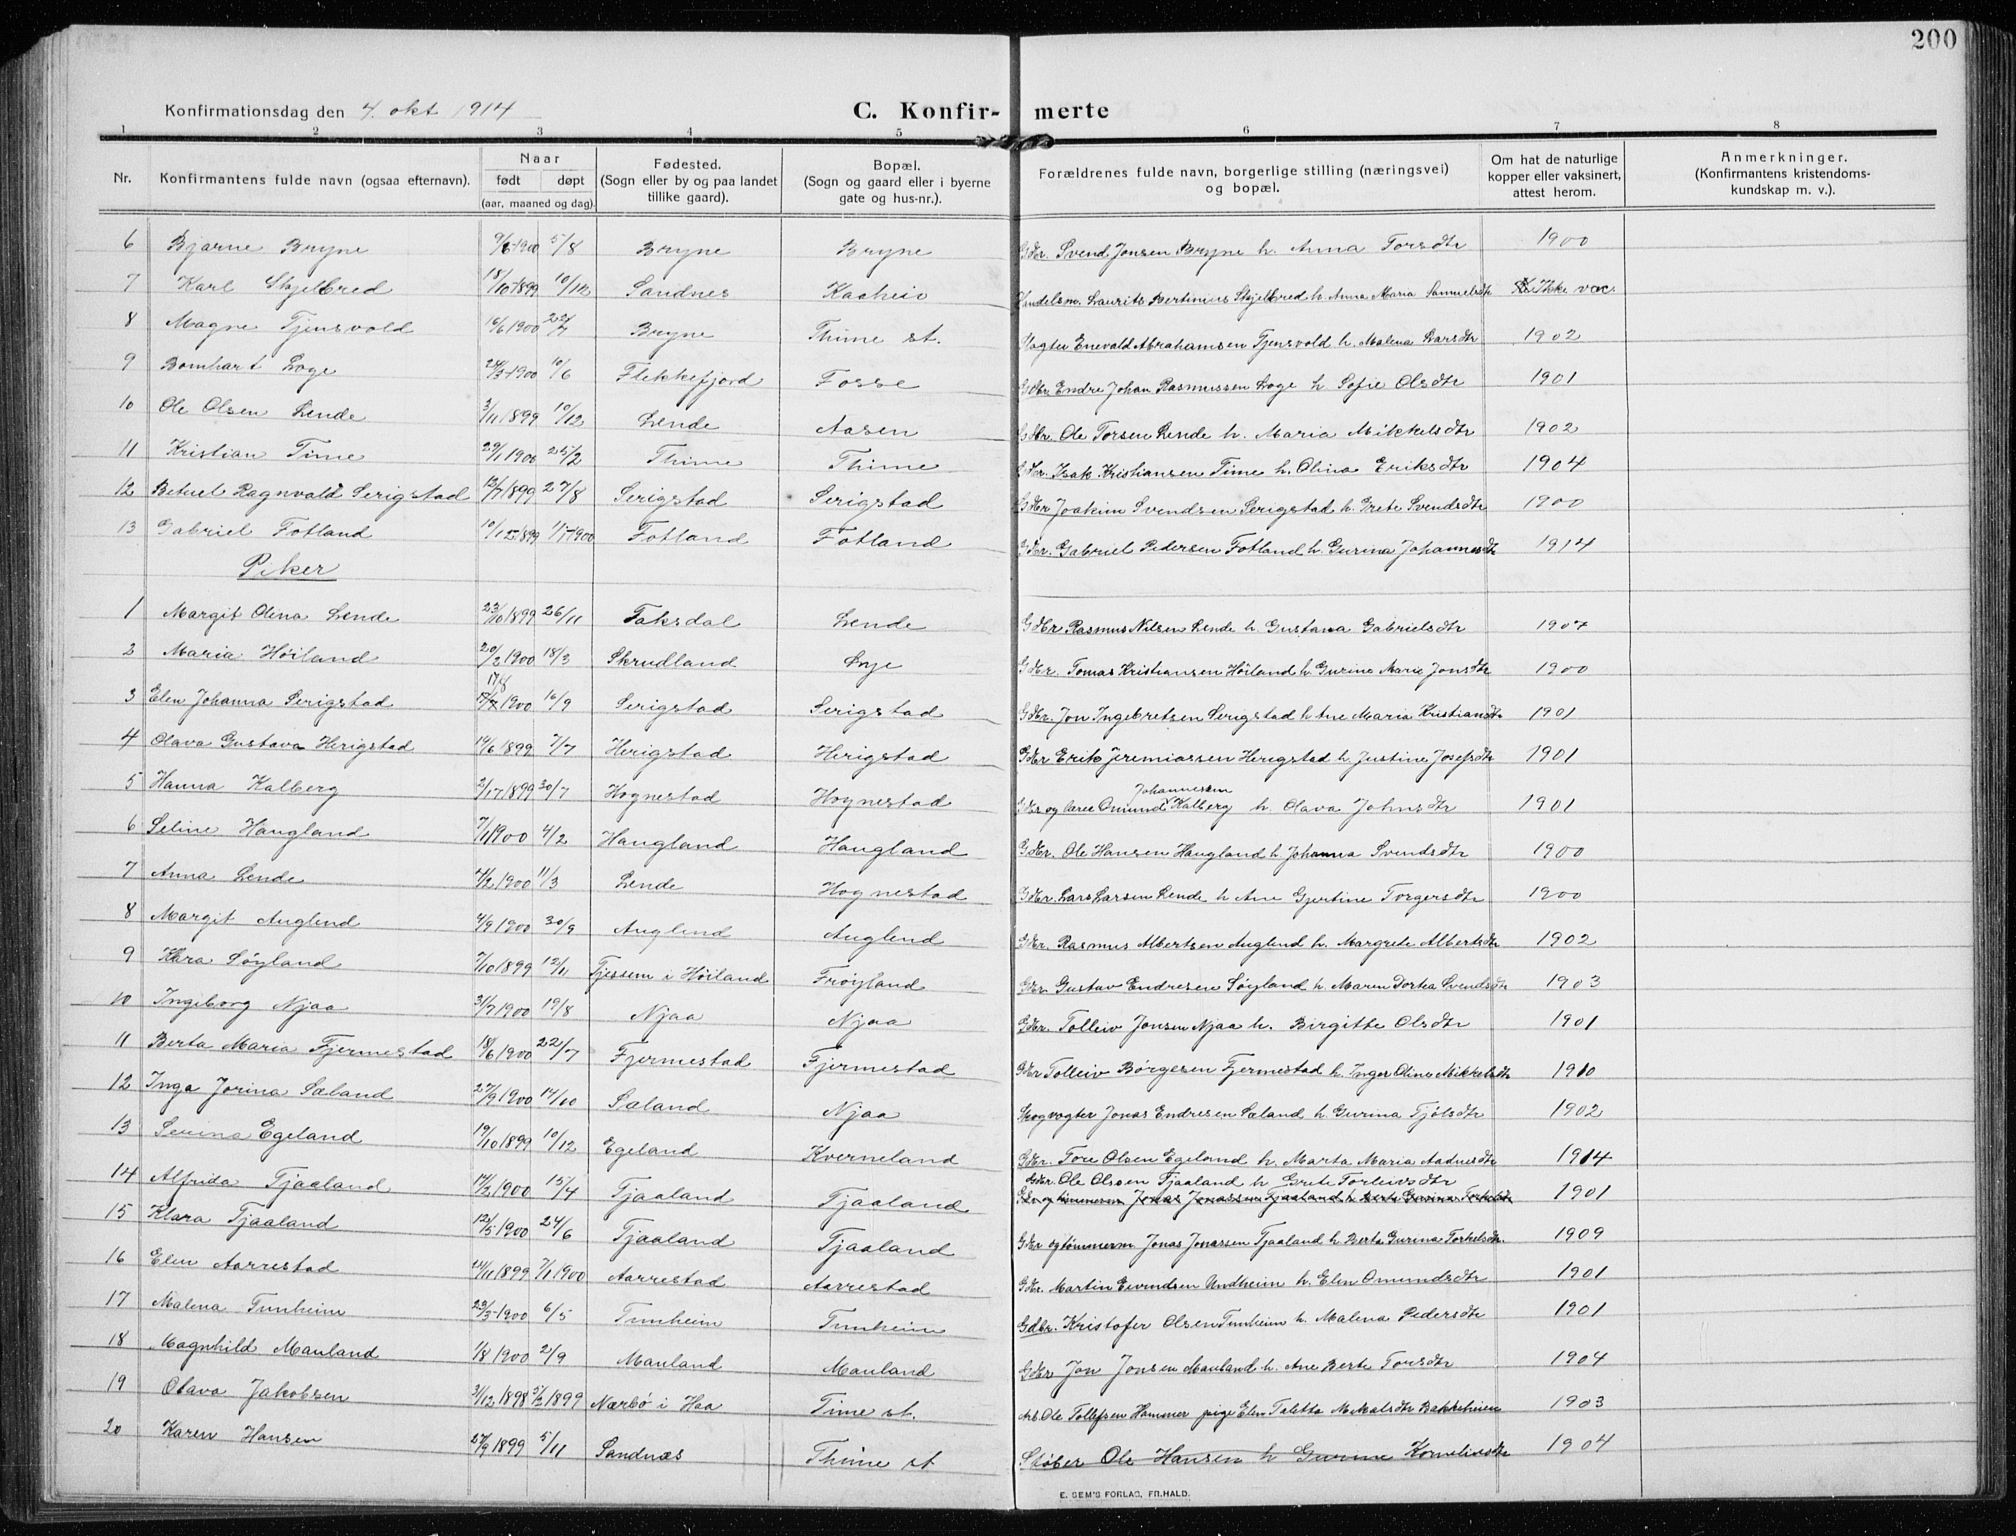 200
Konfirmationsdag den 4. okt 1914
C. Konfir- merte
1 2 3 4 5 6 7 8
Nr. Konfirmantens fulde navn (ogsaa efternavn). Naar født døpt (aar, maaned og dag). Fødested. (Sogn eller by og paa landet tillike gaard). Bopæl. (Sogn og gaard eller i byerne gate og hus-nr.). Forældrenes fulde navn, borgerlige stilling (næringsvei) og bopæl. Om hat de naturlige kopper eller vaksinert, attest herom. Anmerkninger. (Konfirmantens kristendoms- kundskap m. v.).
6 Bjarne Bryne 9/6 1900 5/8 Bryne Bryne Gdbr. Svend Jonsen Bryne h. Anna Torsdtr 1900
7 Karl Skjelbred 18/10 1899 10/12 Sandnes Kaaheia Handelsm. Laurits Bertinius Skjelbred h. Anna Maria Samuelsdtr Ikke vac.
8 Magne Tjensvold 10/6 1900 22/7 Bryne Thime st. Vogter Enevald Abrahamsen Tjensvold h. Malena Larsdtr 1902
9 Bernhart Loge 24/3 1900 10/6 Flekkefjord Fosse Gdbr Endre Johan Rasmussen Loge h Sofie Olsdtr 1901
10 Ole Olsen Lende 3/11 1899 10/12 Lende Aasen Gdbr. Ole Torsen Lende h. Maria Mikkelsdtr 1902
11 Kristian Time 29/1 1900 25/2 Thime Thime Gdbr. Isak Kristiansen Time h. Olina Eriksdtr 1904
12 Betuel Ragnvald Serigstad 12/7 1899 27/8 Serigstad Serigstad Gdbr Joakim Svendsen Serigstad h. Grete Svendsdtr 1900
13 Gabriel Fotland 10/12 1899 1/1 1900 Fotland Fotland Gdbr. Gabriel Pedersen Fotland h. Gurina Johannesdtr 1914
Piker
1 Margit Olena Lende 23/10 1899 26/11 Taksdal Lende Gdbr Rasmus Nilsen Lende h Gustava Gabrielsdtr 1907
2 Maria Höiland 20/2 1900 18/3 Skrudland Øye Gdbr. Tomas Kristiansen Höiland h. Gurine Marie Jonsdtr 1900
17/8
3 Elen Johanna Serigstad 1900 16/9 Serigstad Serigstad Gdbr. Jon Ingebretsen Serigstad h Ane Maria Kristiansdtr 1901
4 Olava Gustava Herigstad 19/6 1899 7/7 Herigstad Herigstad Gdbr Erik Jeremiassen Herigstad h Justine Josefsdtr 1901
5 Hanna Kalberg 2/7 1899 30/7 Hognestad Hognestad Gdbr og lærer Omund Johannesen Kalberg h Olava Johnsdtr 1901
6 Seline Haugland 7/1 1900 4/2 Haugland Haugland Gdbr. Ole Hansen Haugland h Johanna Svendsdtr 1900
7 Anna Lende 4/2 1900 11/3 Lende Hognestad Gdbr. Lars Larsen Lende h Ane Gjertine Torgersdtr 1900
8 Margit Auglend 4/9 1900 30/9 Auglend Auglend Gdbr. Rasmus Albertsen Auglend h. Margrete Albertsdtr 1902
9 Klara Söyland 7/10 1899 12/11 Tjessem i Höiland Fröyland Gdbr. Gustav Endresen Söyland h Maren Dortea Svendsdtr 1903
10 Ingeborg Njaa 31/7 1900 19/8 Njaa Njaa Gdbr. Tolleiv Jonsen Njaa h. Birgitte Olsdtr 1901
11 Berta Maria Fjermestad 18/6 1900 22/7 Fjermestad Fjermestad Gdbr Tolleiv Börgesen Fjermestad h. Inger Oline Mikkelsdtr 1910
12 Inga Jorina Sæland 27/9 1900 14/10 Sæland Njaa Skogvogter Jonas Endresen Sæland h Gurina Tjölsdtr 1902
13 Serina Egeland 19/10 1899 10/12 Egeland Kverneland Gdbr. Tore Olsen Egeland h. Marta Maria Aadnesdtr 1914
Gdbr. Ole Olsen Tjaaland h Grete Torleivsdtr
14 Alfrida Tjaaland 14/3 1900 15/4 Tjaaland Tjaaland Gdbr og tømmerm Jonas Jonassen Tjaaland h Berte Gurina Torkelsdtr 1901
15 Klara Tjaaland 12/5 1900 24/6 Tjaaland Tjaaland Gdbr og tømmerm Jonas Jonassen Tjaaland h Berta Gurina Torkelsdtr. 1909
16 Elen Aarrestad 14/11 1899 7/1 1900 Aarrestad Aarrestad Gdbr. Martin Eivendsen Undheim h. Elen Omundsdtr 1901
17 Malena Tunheim 23/3 1900 6/5 Tunheim Tunheim Gdbr. Kristofer Olsen Tunheim h. Malena Pedersdtr 1901
18 Magnhild Mauland 1/8 1900 2/9 Mauland Mauland Gdbr Jon Jonsen Mauland h. Ane Berte Torsdtr 1904
19 Olava Jakobsen 3/12 1898 5/2 1899 Nærbö i Haa Time st. Arb. Ole Tollefsen Hammer pige Elen Taletta Mikalsdtr Bakkeheien 1903
20 Karen Hansen 27/9 1899 5/11 Sandnæs Thime st Støber Ole Hansen h Gurine Korneliusdtr 1904
E. SEM'S FORLAG, FR.HALD.